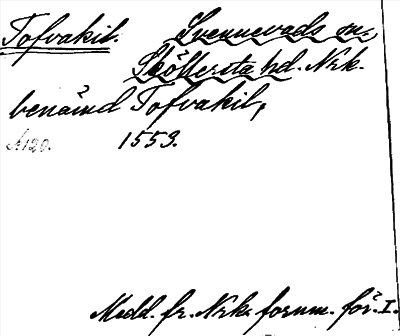 Tofvakil. Svennevads sn.
Sköllersta hd. Nrk.
benämnd Tofvakil,
A120. 1553.
Medd. fr. Nrk. fornm. för. I.